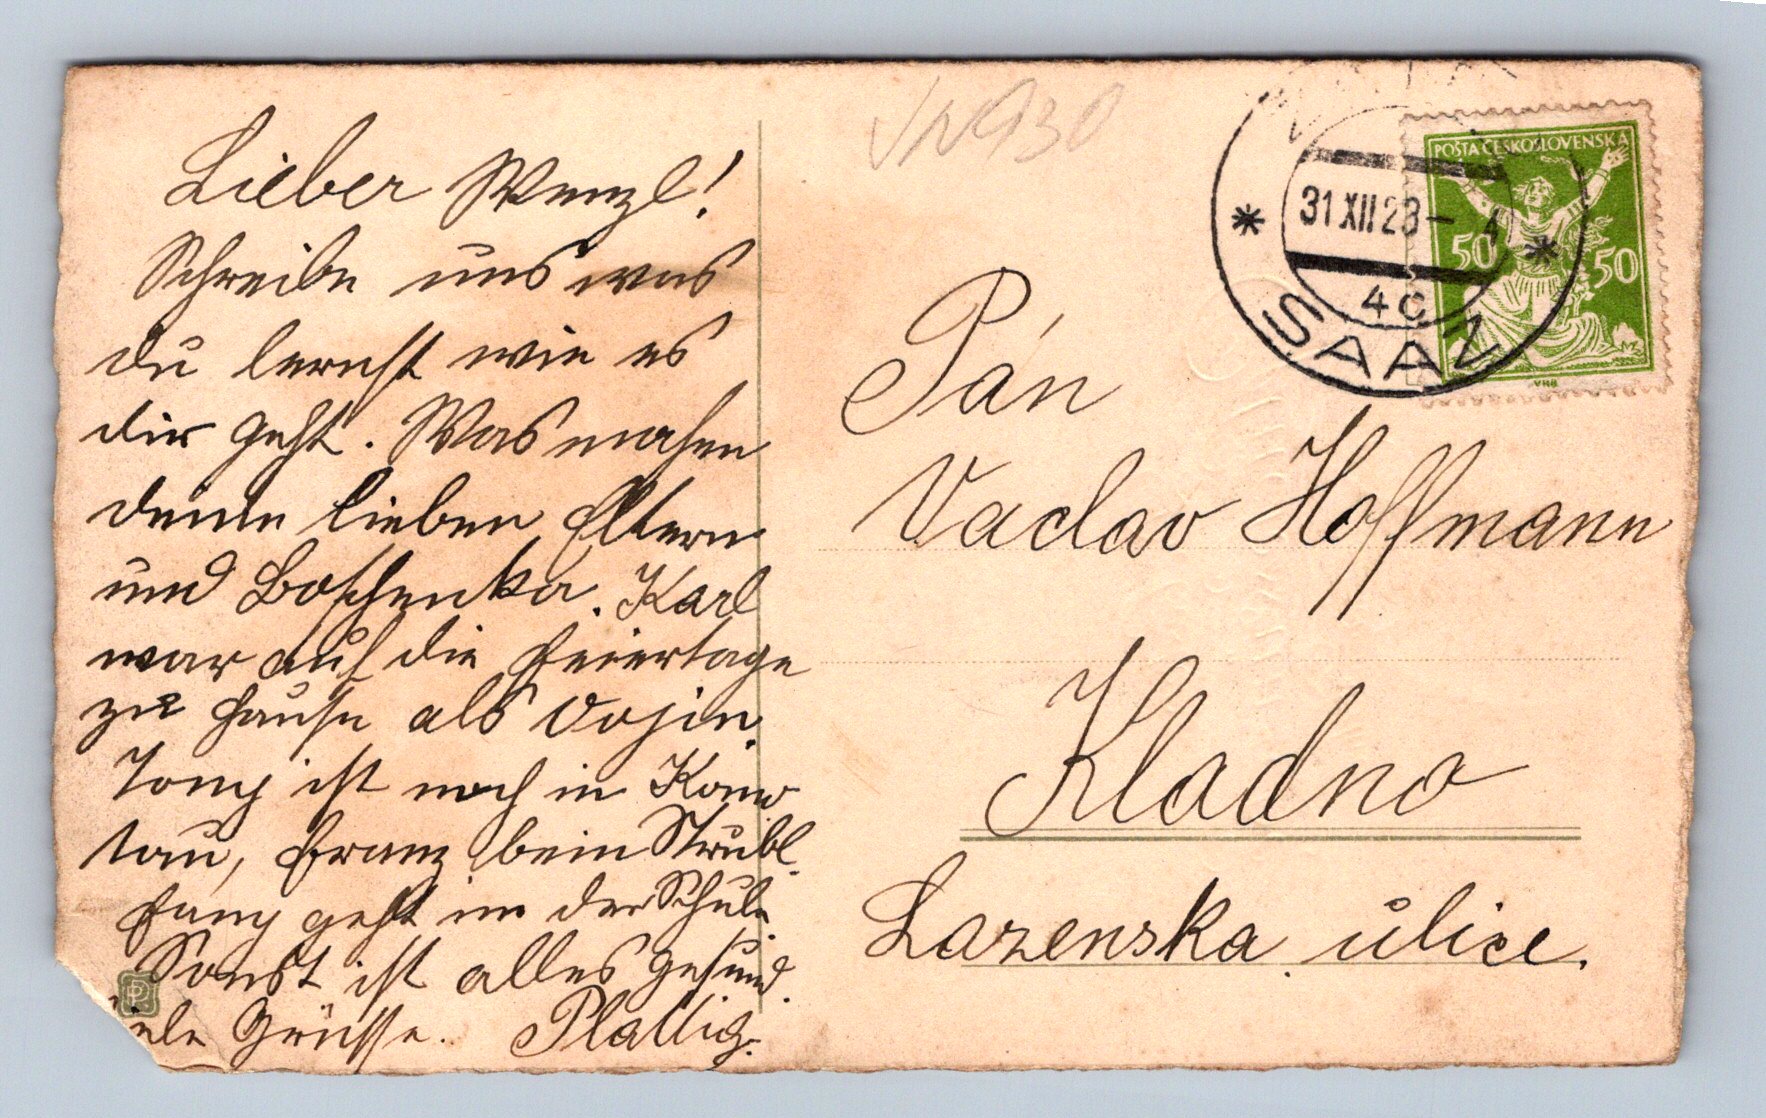 Lieber Wenzl!
Schreibe uns was
du lernst wie es
dir geht. Was machen
deine lieben Eltern
und Boschenka. Karl
war auf die Feiertage
zu Hause als Vojin.
Tony ist noch in Komo
tau, Franz beim Strubl.
Fany geht in der Schule.
Sonst ist alles gesund.
iele Grüsse. Plattig.
PR
930
POŠTA ČESKOSLOVENSKÁ
50 50
31 XII 23 - 4
4c
SAAZ
Pán
Vaclav Hoffmann
Kladno
Lazenska ulice.